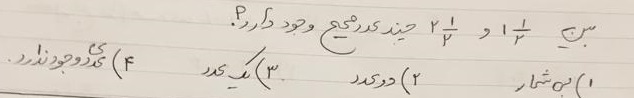 بین ۱ ۱/۲ و ۲ ۱/۲ چند عدد صحیح وجود دارد؟
۱) بی شمار ۲) دو عدد ۳) یک عدد ۴) عددی وجود ندارد.